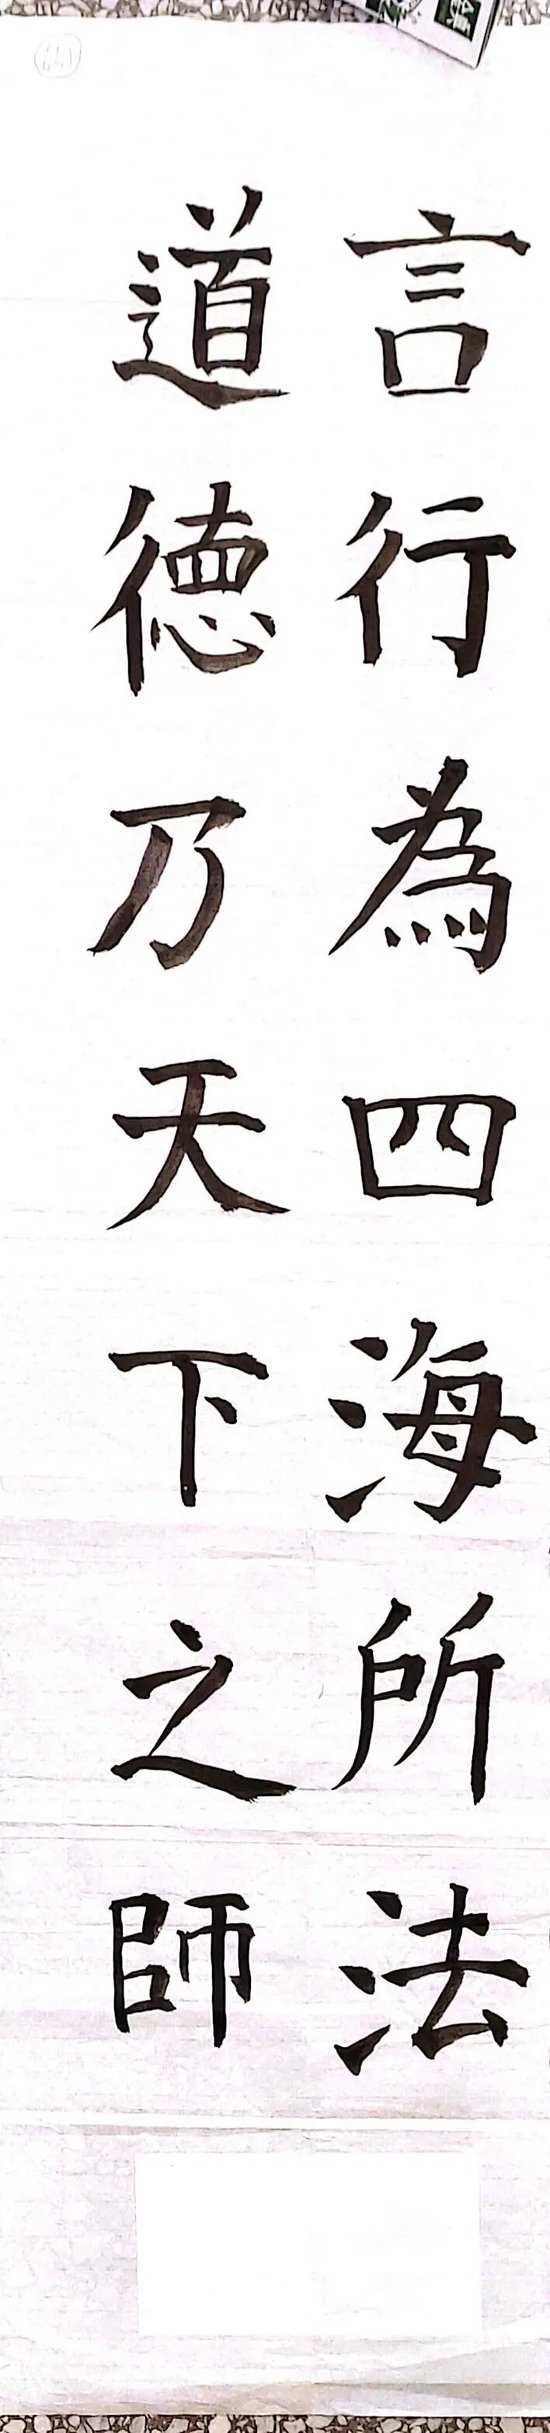 言行為四海所法
道徳乃天下之師